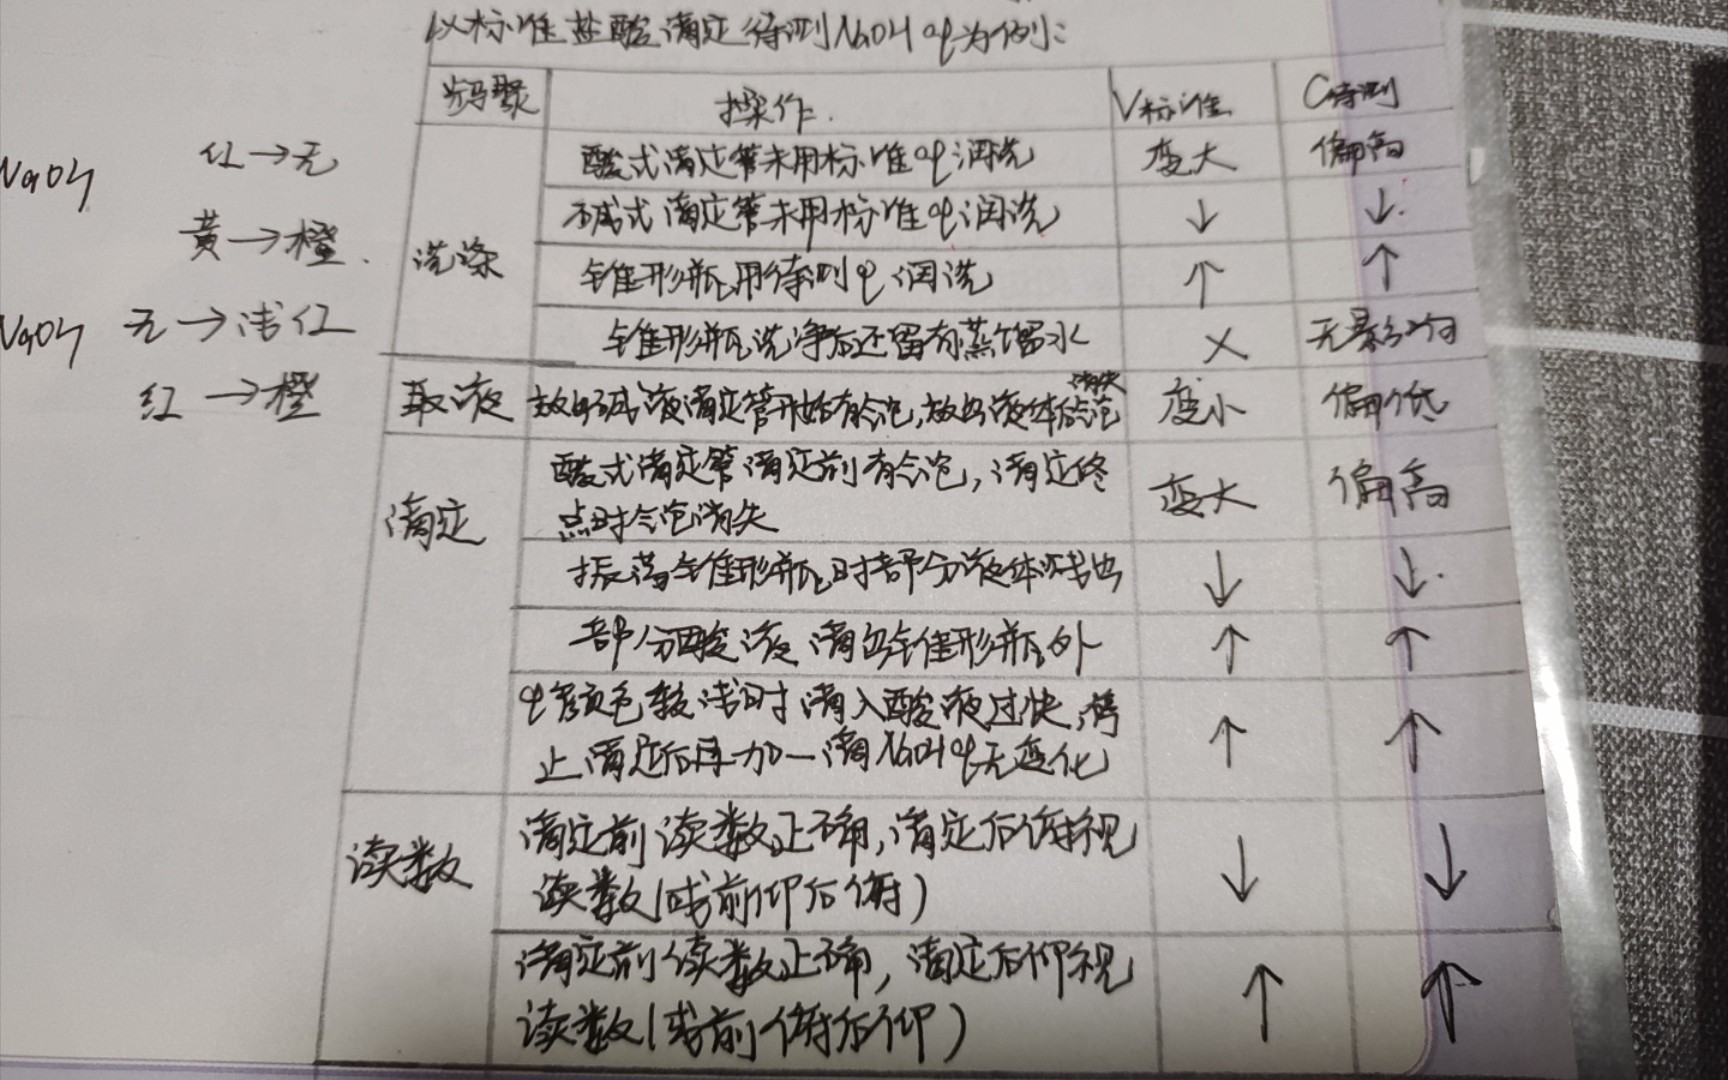 以标准盐酸滴定待测NaOH aq为例:
步骤 操作. V标准 C待测
洗涤 酸式滴定管未用标准aq润洗 变大 偏高
碱式滴定管未用标准aq润洗 ↓ ↓.
锥形瓶用待测aq润洗 ↑ ↑
锥形瓶洗净后还留有蒸馏水 × 无影响
取液 放出碱液滴定管开始有气泡,放出液体后气泡消失 变小 偏低
滴定 酸式滴定管滴定前有气泡,滴定终 变大 偏高
点时气泡消失
振荡锥形瓶时部分液体溅出 ↓ ↓.
部分酸液滴出锥形瓶外 ↑ ↑
aq颜色较浅时滴入酸液过快,停 ↑ ↑
止滴定后再加一滴NaOH aq无变化
读数 滴定前读数正确,滴定后俯视 ↓ ↓
读数(或前仰后俯)
滴定前读数正确,滴定后仰视 ↑ ↑
读数(或前俯后仰)
NaOH 红→无
黄→橙.
NaOH 无→浅红
红→橙